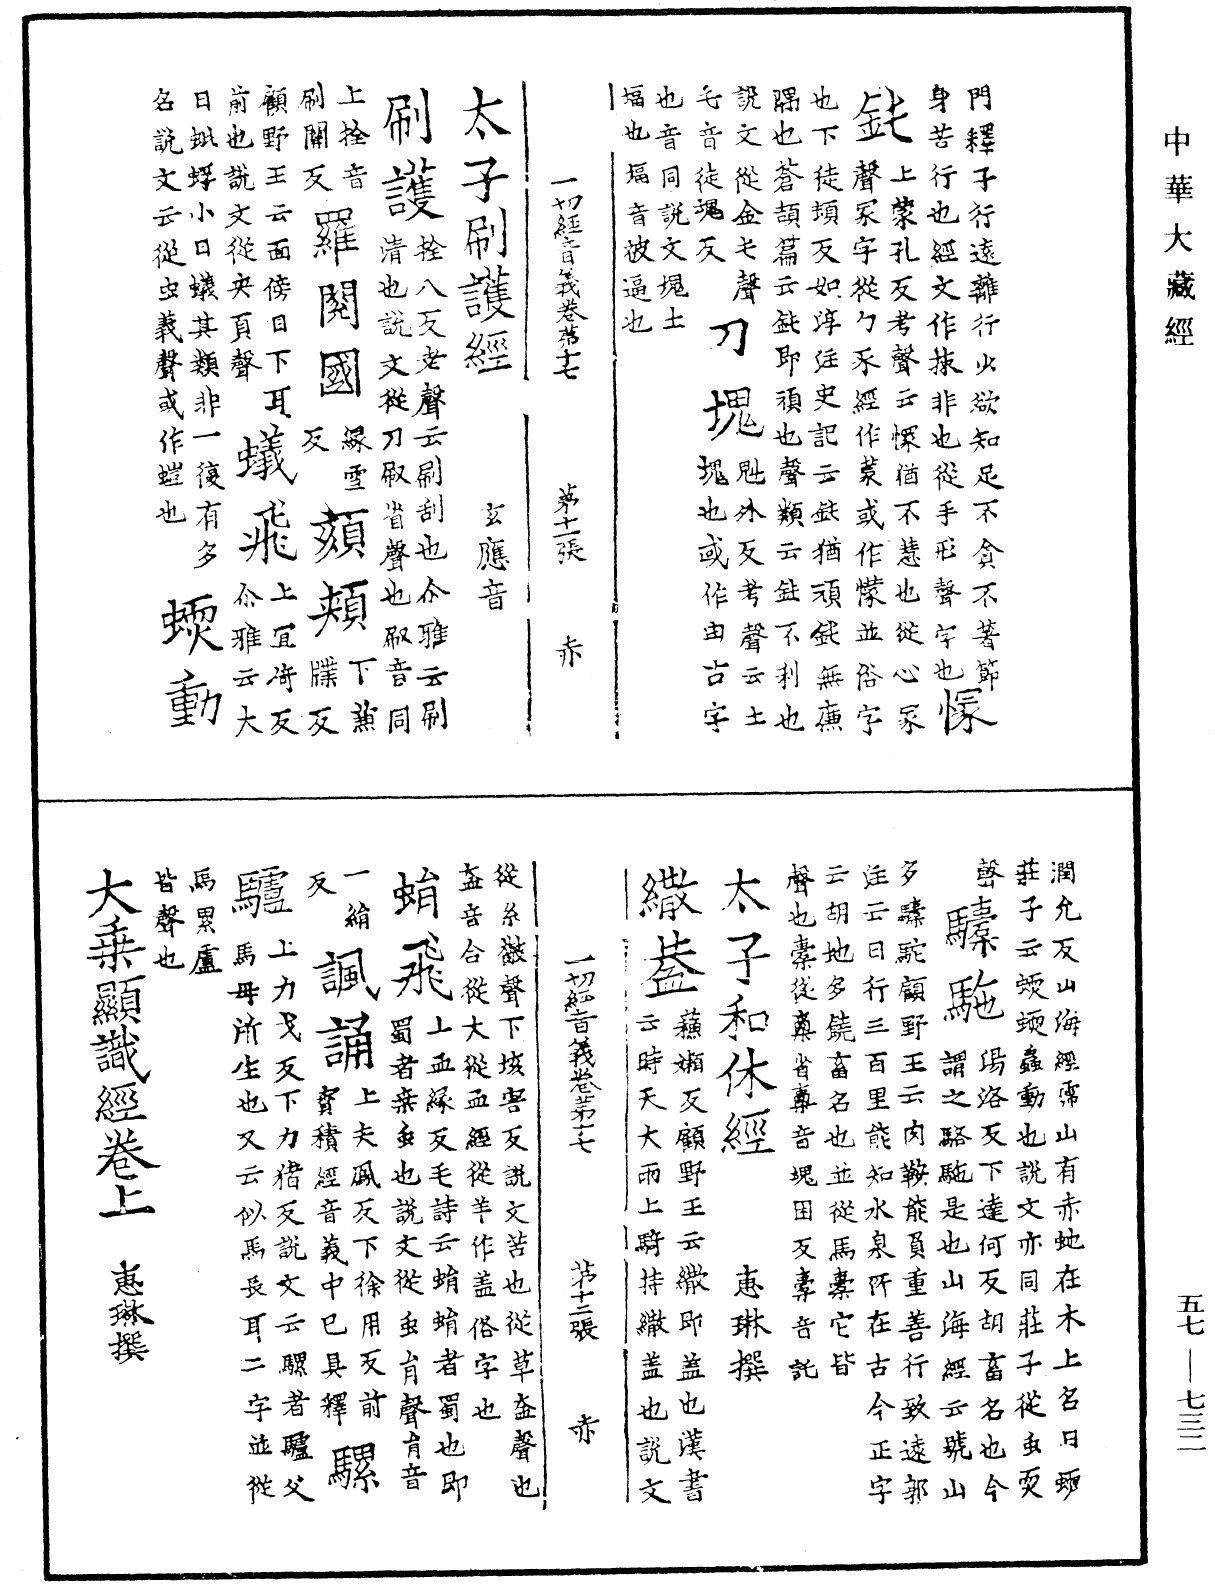 中華大藏經
門釋子行遠離行少欲知足不貪不著節
身苦行也經文作捒非也從手形聲字也懞
鈍上蒙孔反考聲云懞猶不慧也從心冡
聲冡字從勹豕經作蒙或作懞並俗字
也下徒頓反如淳注史記云鈍猶頑鈍無廉
隅也蒼頡篇云鈍即頑也聲類云鈍不利也
說文從金屯聲刀塊魁外反考聲云土
屯音徒魂反塊也或作凷古字
也音同說文塊土
堛也堛音披逼也
一切經音義卷第十七 第十一張 赤
太子刷護經 玄應音
刷護拴八反考聲云刷刮也尒雅云刷
清也說文從刀㕞省聲也㕞音同
上拴音
刷關反羅閱國緣雪反蘋頰下兼牒反
顧野王云面傍曰下耳
前也說文從夾頁聲蟻飛上冝倚反尒雅云大
曰蚍蜉小曰蟻其類非一復有多
名說文云從虫義聲或作螘也蝡動
潤允反山海經霈山有赤虵在木上名曰蝡
莊子云蝡蝡蟲動也說文亦同莊子從虫耎
聲驝駞湯洛反下達何反胡畜名也今
謂之駱駞是也山海經云號山
多驝駝顧野王云肉鞍能負重善行致遠郭
注云日行三百里能知水泉所在古今正字
云胡地多饒畜名也並從馬橐它皆
聲也橐從㯻省㯻音塊困反橐音託
太子和休經 惠琳撰
繖蓋蘇嬾反顧野王云繖即蓋也漢書
云時天大雨上騎持繖蓋也說文
一切經音義卷第十七 第十二張 赤
從糸㪔聲下垓害反說文苫也從草盍聲也
盍音合從大從血經從羊作盖俗字也
蜎飛上血緣反毛詩云蜎蜎者蜀也即
蜀者桑虫也說文從虫肙聲肙音
一絹反諷誦上夫鳳反下徐用反前
寶積經音義中已具釋騾
驢上力戈反下力猪反說文云騾者驢父
馬母所生也又云似馬長耳二字並從
馬累盧
皆聲也
大乘顯識經卷上 惠琳撰
五七—七三二